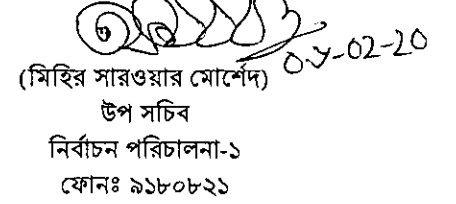 (মিহির সারওয়ার মোর্শেদ)
উপ সচিব
নির্বাচন পরিচালনা-১
ফোনঃ ৯১৮০৮২১